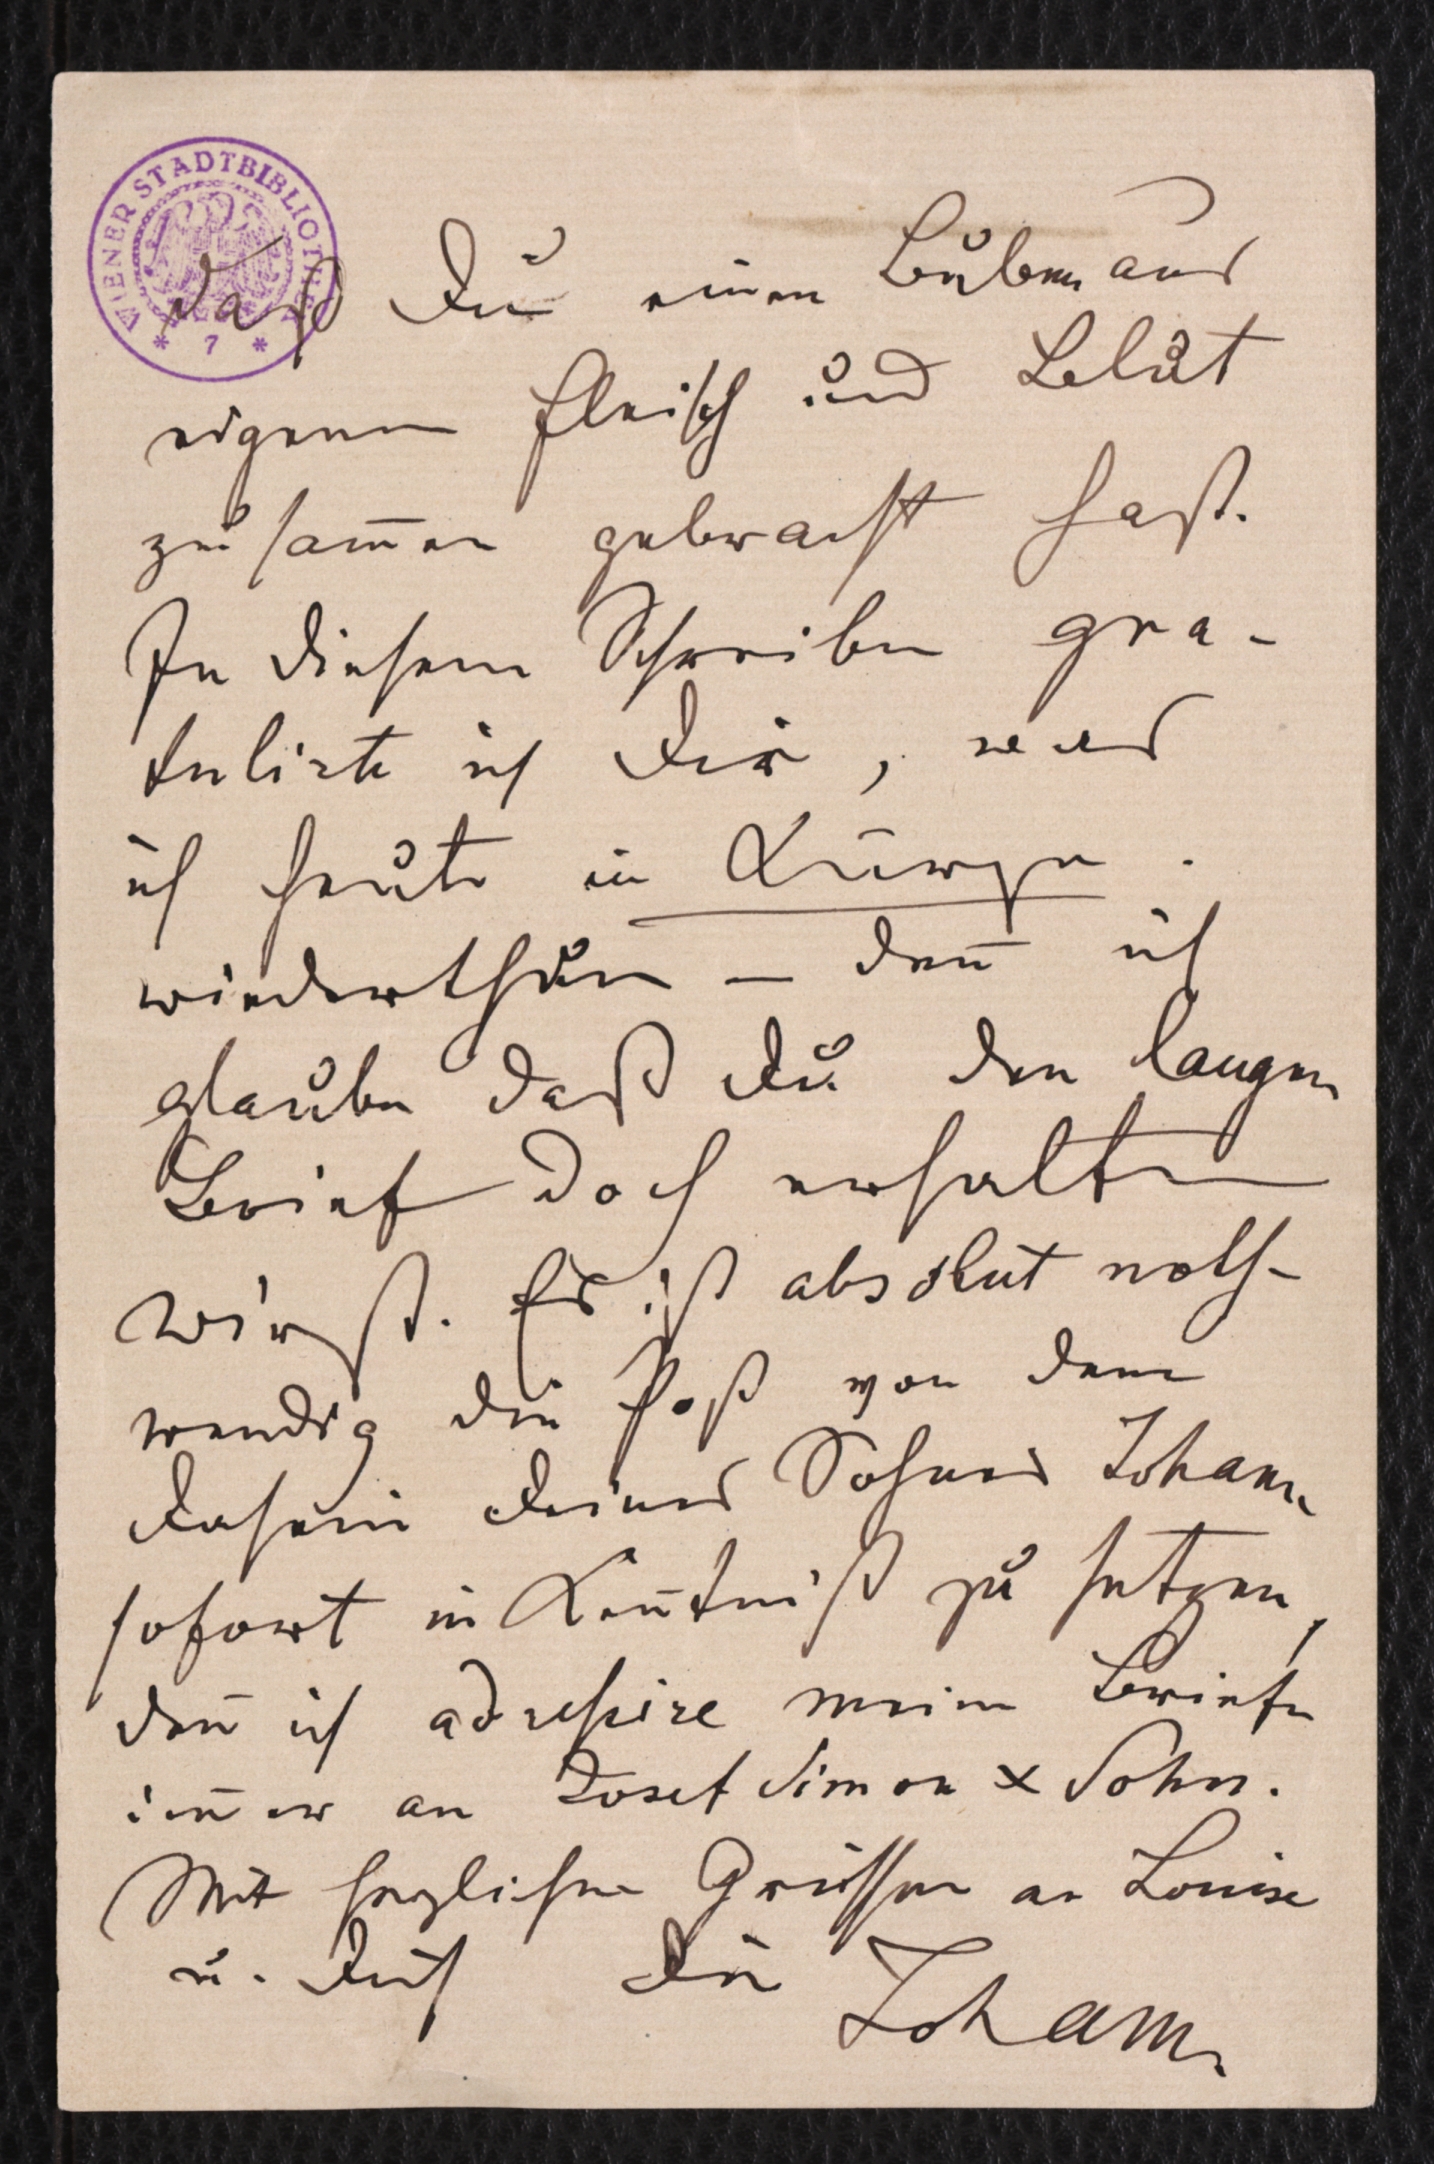 WIENER STADTBIBLIOTHEK
* 7 *
daß Du einen Buben aus
eigenem Fleisch und Blut
zusam̄en gebracht hast.
In diesem Schreiben gra-
tulirte ich Dir, was
ich heute in Kürze.
wiederthun – den̄ ich
glaube daß Du den langen
Brief doch erhalten
wirst. Es ist absolut noth-
wendig die Post von dem
Dasein Deines Sohnes Johann
sofort in Ken̄tniß zu setzen,
den̄ ich adressire meine Briefe
im̄er an Josef Simon & Sohn.
Mit herzlichen Grüssen an Louise
u. Dich Dein Johann